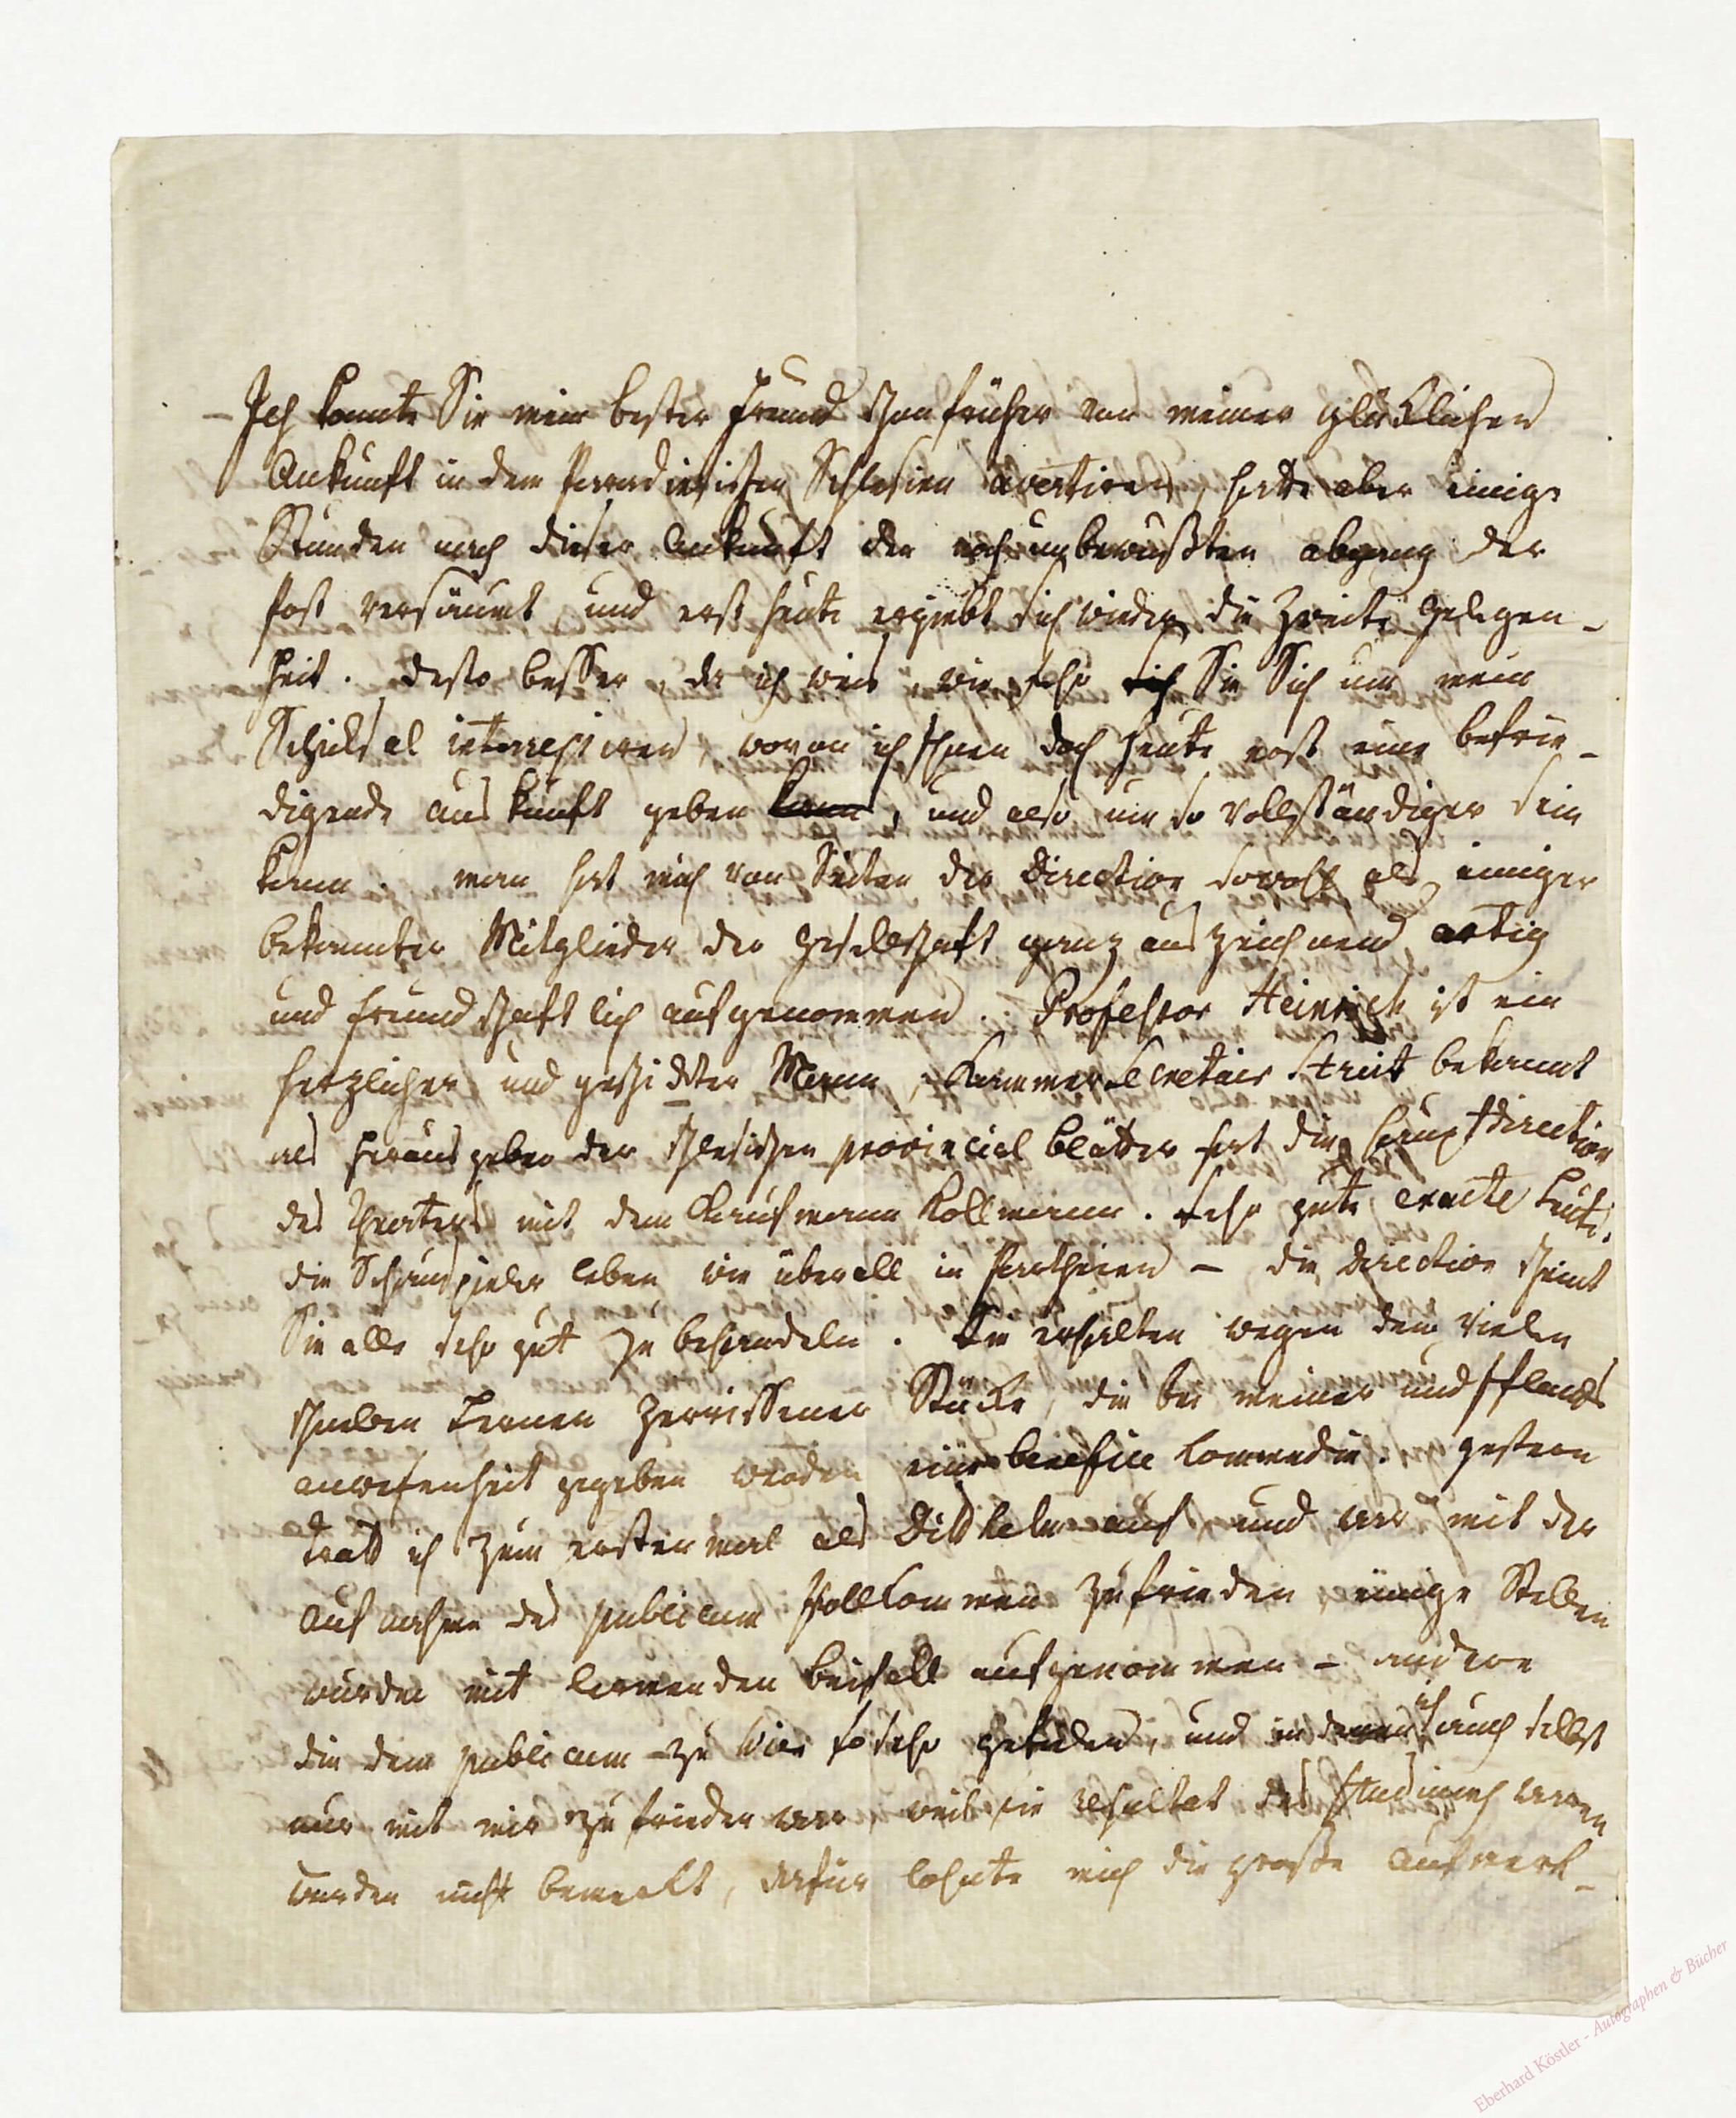 – Ich konnte Sie mein bester Freund schon früher von meiner glücklichen
Ankunft in dem Paradiesischen Schlesien avertiren, hatte aber einige
Stunden nach dieser Ankunft den noch unbewußten abgang der
Post versäumt, und erst heute ergiebt sich wieder die zweite Gelegen-
heit. desto besser, da ich weis, wie sehr Sie Sich um mein
Schicksal interressiren, wovon ich Ihnen doch heute erst eine befrie-
digende auskunft geben kann, und also um so vollständiger sein
kann. man hat mich von Seiten der Direction sowohl als einiger
bekannter Mitglieder der Gesellschaft ganz auszeichnend artig
und freundschaftlich aufgenommen. Professor Heinrich ist ein
herzlicher und geschickter Mann, Kammersecretair Streit bekannt
als Herausgeber der schlesischen provincial blätter hat die Hauptdirection
des Theaters mit dem Kaufmann Kollmann. sehr gute exacte Leute.
die Schauspieler leben wie überall in Partheien – die Direction scheint
Sie alle sehr gut zu behandeln. Sie erhalten wegen dem vielen
schnellen Lernen zerrissener Stücke, die bei meiner und Ifflands
anwesenheit gegeben werden eine benefice Commedie. gestern
tratt ich zum erstenmal als auf, und war mit der
aufnahme des publicum vollkommen zufrieden, einige Stellen
wurden mit lermenden beifall aufgenommen – andere
die dem publicum zu Wien so sehr gefielen, und in denen ich auch selbst
nur mit mir zufrieden war, weil sie resultat des Studiums waren
wurden nicht bemerkt, dafür lohnte mich die große aufmerk-
Eberhard Köstler - Autographen & Bücher